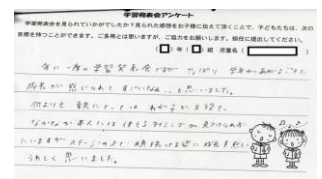 学習発表会アンケート
学習発表会を見られていかがでしたか？見られた感想をお子様に伝えて頂くことで、子どもたちは、次の
目標を持つことができます。ご多用とは思いますが、ご協力をお願いします。担任に提出してください。
（ ）年（ ）組 児童名（ ）
年に一度の学習発表会ですが、やっぱり 学年があがるごとに
成長が感じられて すごいなぁ…と思いました。
何よりも
なかなか本人には 伝えるタイミングが 見つけられず
にいますが ステージの上で 頑張ってる姿に 成長を感じ
うれしく思いました。